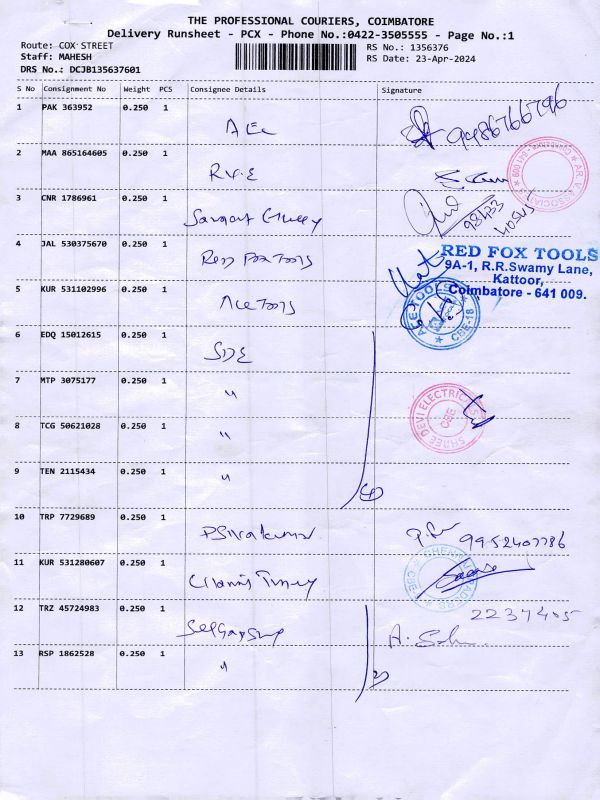 THE PROFESSIONAL COURIERS, COIMBATORE
Delivery Runsheet - PCX - Phone No.:0422-3505555 - Page No.:1
Route: COX STREET
Staff: MAHESH
DRS No.: DCJB135637601
RS No.: 1356376
RS Date: 23-Apr-2024
S No Consignment No Weight PCS Consignee Details Signature
1 PAK 363952 0.250 1
9486766796
2 MAA 865164605 0.250 1
R.V.E
3 CNR 1786961 0.250 1
4 JAL 530375670 0.250 1
Red Fox Tools
RED FOX TOOLS
9A-1, R.R.Swamy Lane,
Kattoor,
Coimbatore - 641 009.
5 KUR 531102996 0.250 1
Ace Tools
ACE TOOLS
CBE-18
6 EDQ 15012615 0.250 1
SDE
7 MTP 3075177 0.250 1
"
SHREE DEVI ELECTRICALS
CBE
8 TCG 50621028 0.250 1
"
9 TEN 2115434 0.250 1
"
4
10 TRP 7729689 0.250 1
P Sivakumar
9952407786
11 KUR 531280607 0.250 1
12 TRZ 45724983 0.250 1
2237405
13 RSP 1862528 0.250 1
"
2